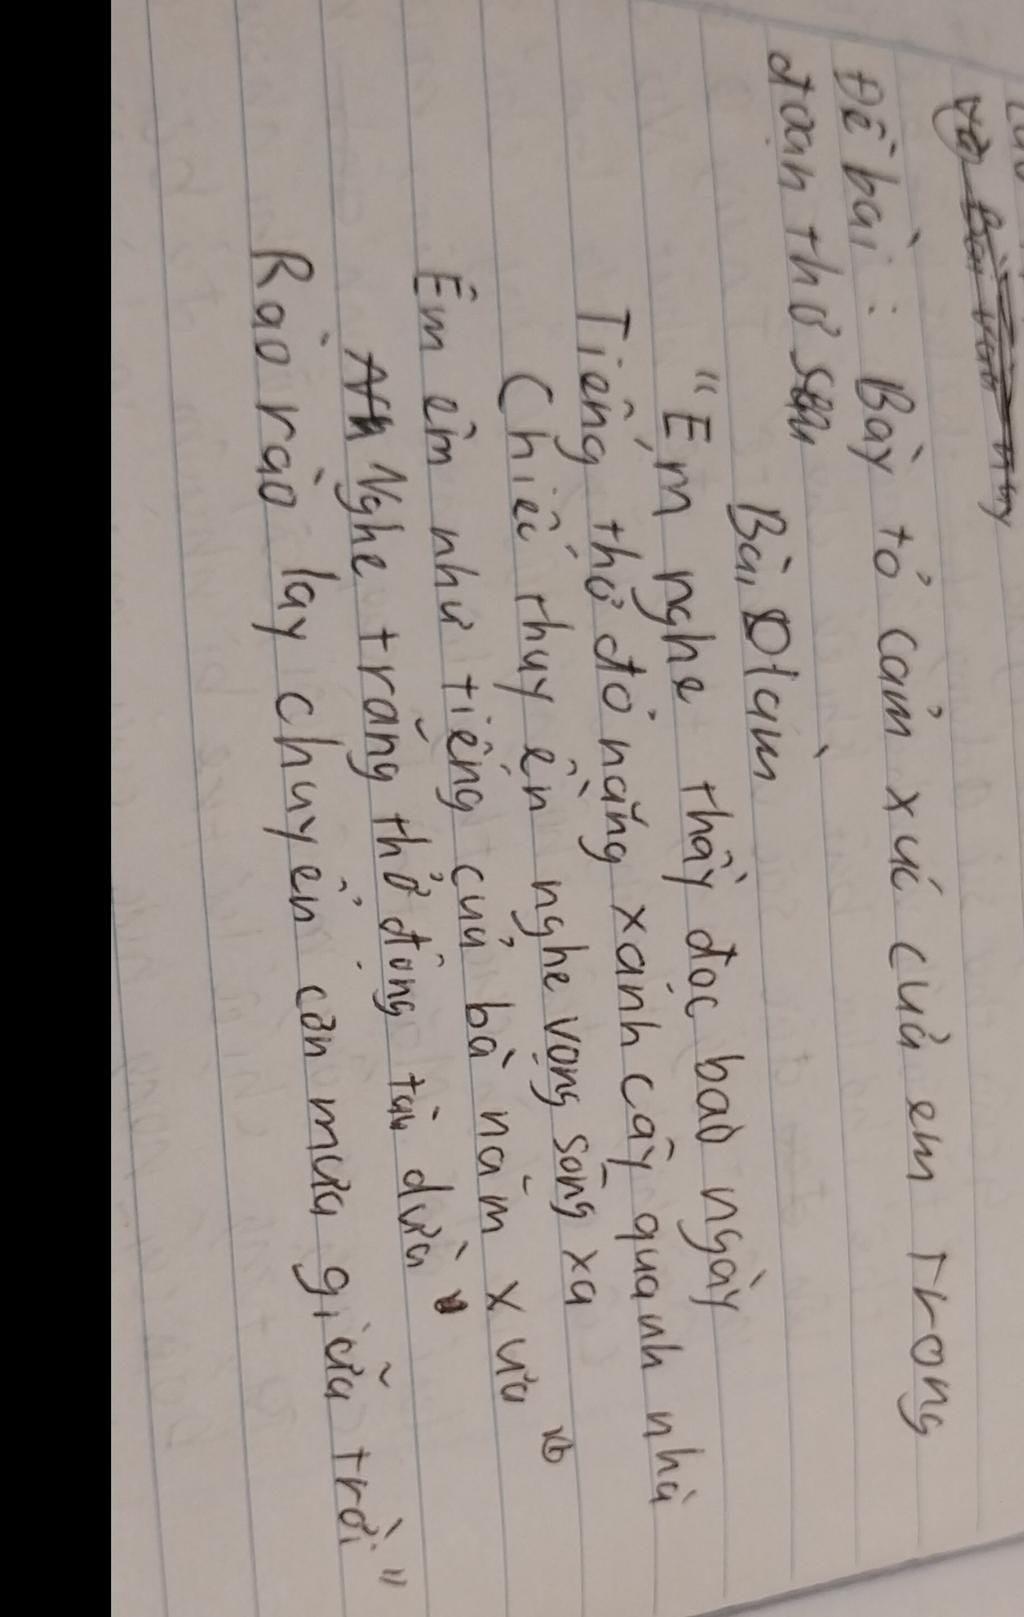 Đề bài: Bày tỏ cảm xúc của em trong
đoạn thơ sau
Bài làm
"Em nghe thầy đọc bao ngày
Tiếng thơ đỏ nắng xanh cây quanh nhà
Chiếc thuyền nghe vọng sông xa
Êm êm như tiếng của bà năm xưa
Nghe trăng thở động tàu dừa
Rào rào lay chuyển cơn mưa giữa trời"